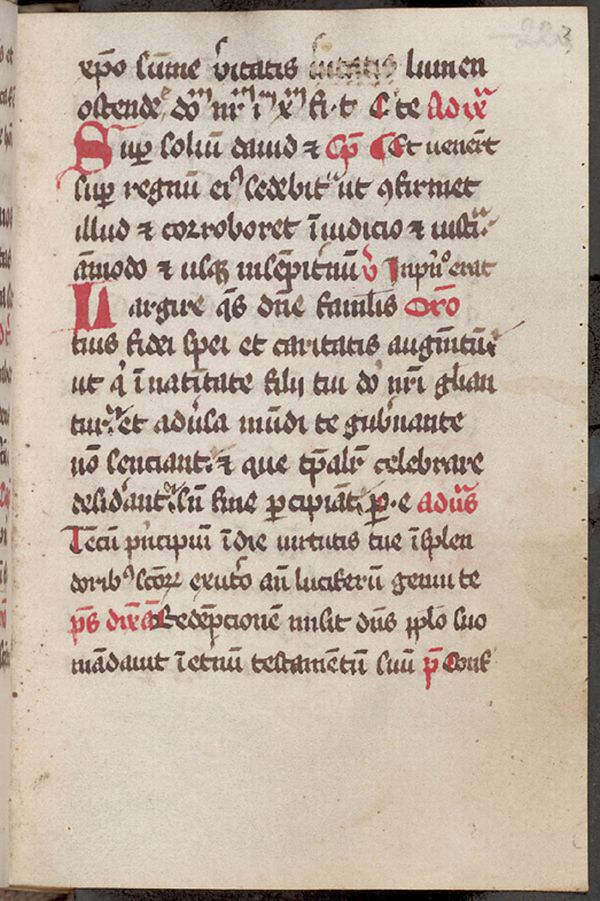 xp̄o sūme v̓itatis lumen
ostende do᷒ nr̄ i x fi·t c te Ad ix
Sup̱ soliū dauid ⁊ cp̄ Et uenert
sup̱ regnū ei᷒ sedebit ut ꝯfirmet
illud ⁊ corroboret ī iudicio ⁊ iusti.ͣ
āmodo ⁊ usq̨ insēpit̓nū v̓ Inpn᷒ erat
Largire q̄s dn̄e famlis Oro
tuis fidei spei et caritatis augm̄tū·
ut q̓ ī natītate filij tui do nr̄i glian
tur· et adu̓sa mūdi te gub̓nante
nō senciant· ⁊ que tp̄alr̄ celebrare
desid̓ant· sū fine ꝑcipiāt· ꝑ·e ad us
Tecū pn̓cipiū ī die uirtutis tue ī splen
dorib᷒ scoꝝ ex ut̓o an̄ lucifeꝛū genui te
p̄s dix̄ Redēpcionē misit dn̄s pplo suo
mādauit ī etn̓ū testamētū suū p̄ Conf